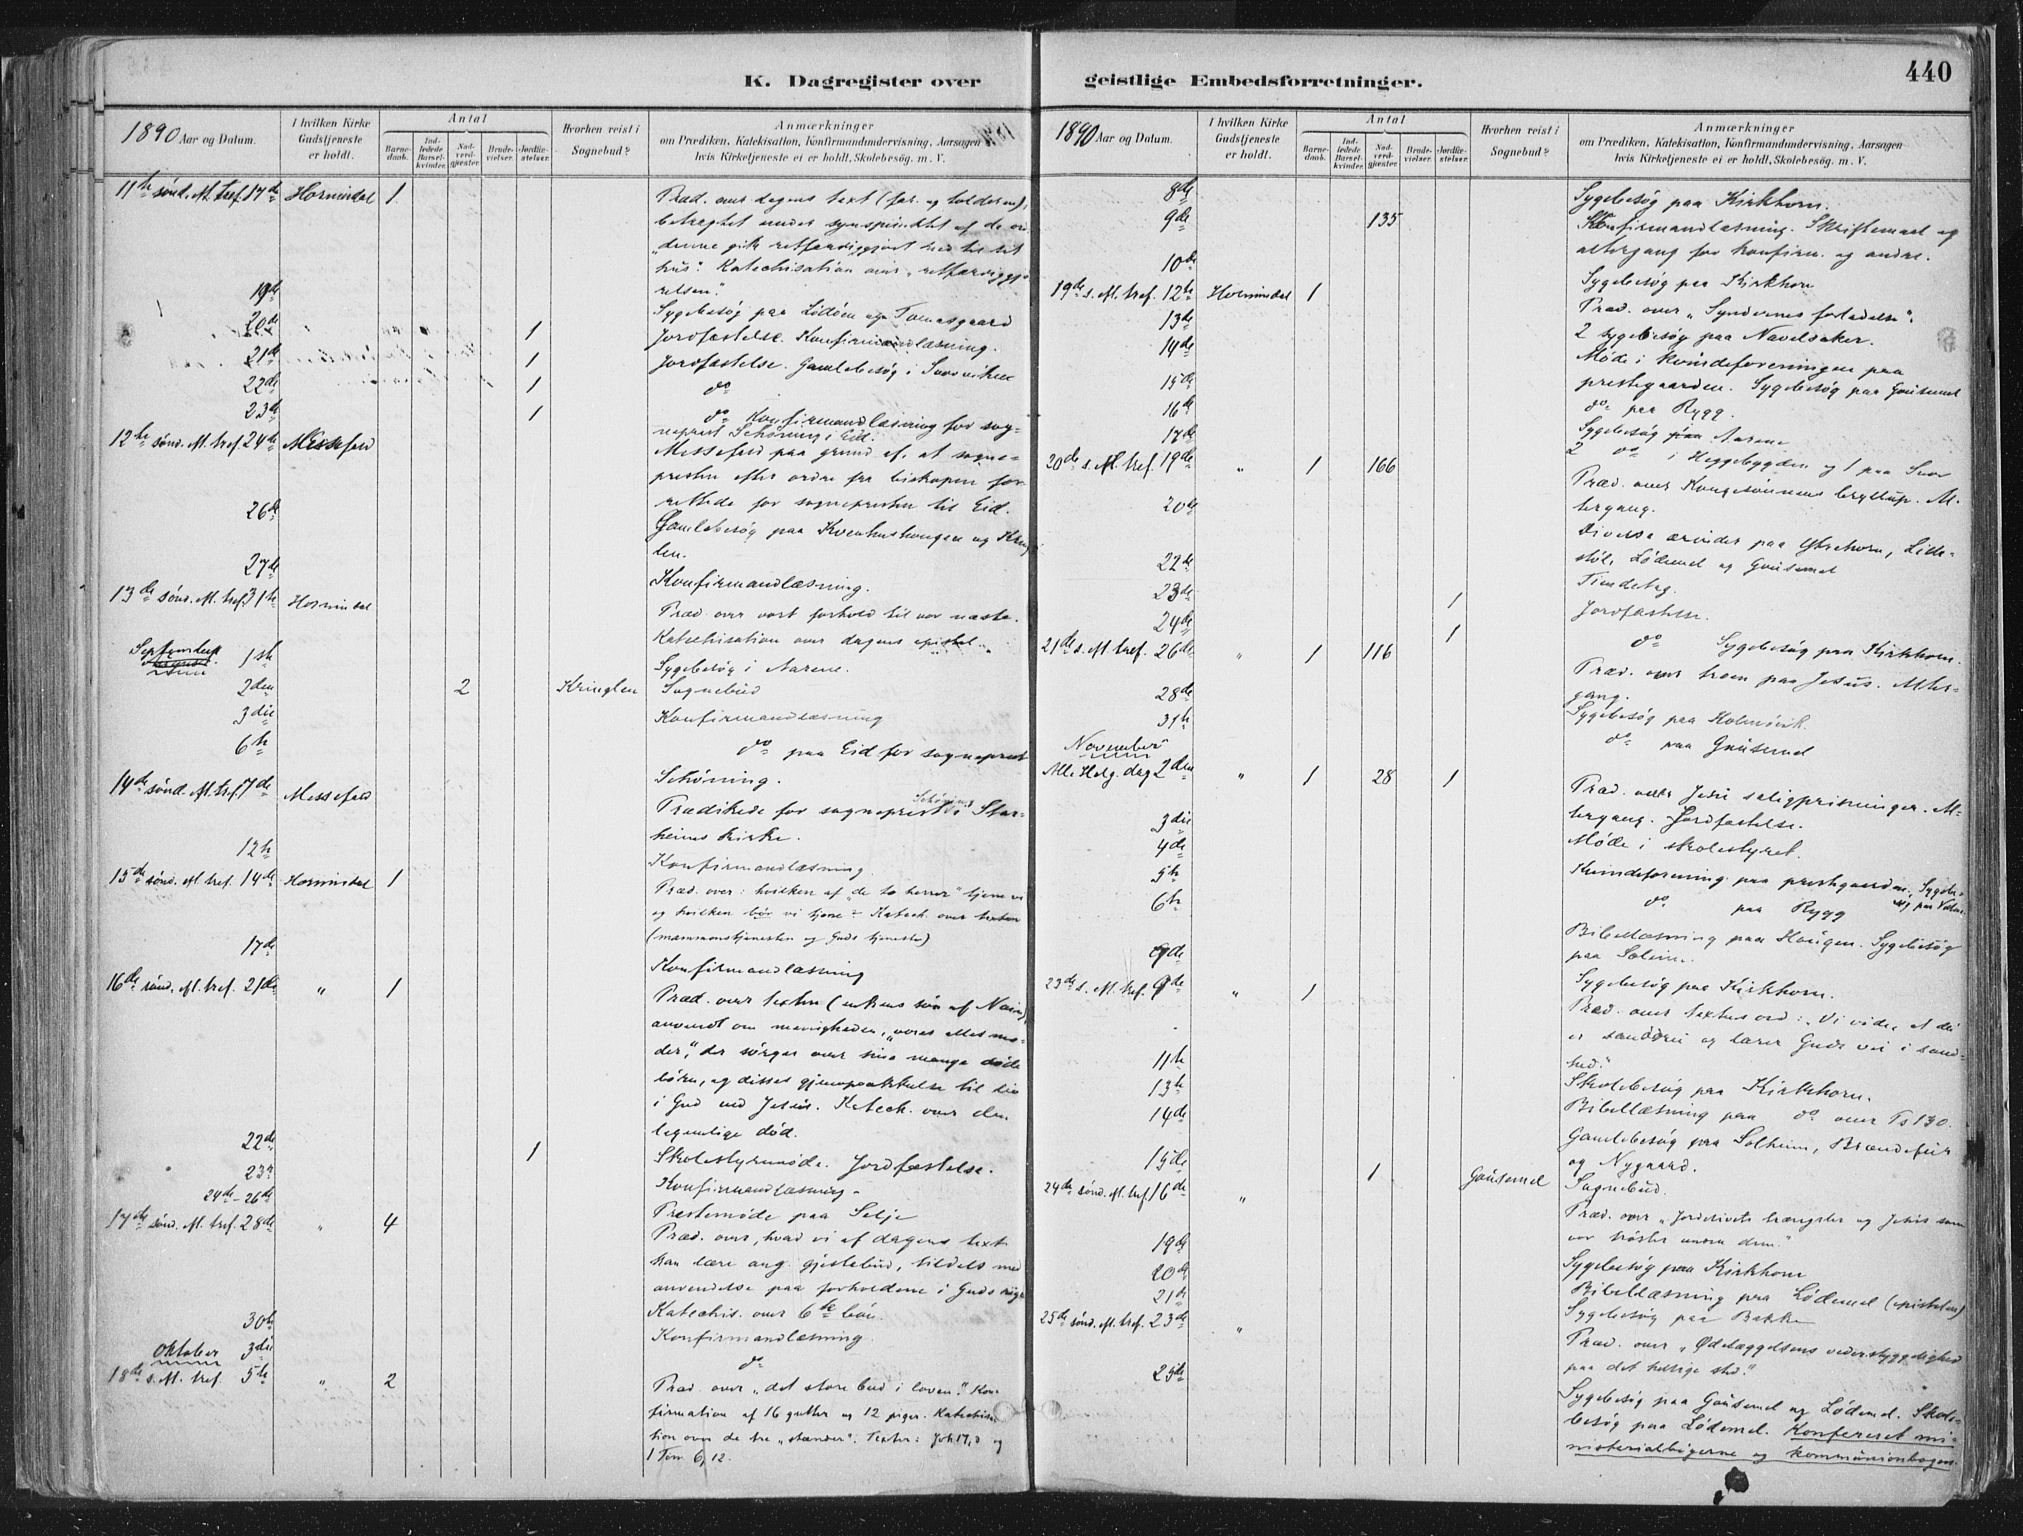 K. Dagregister over
1890 Aar og Datum.
I hvilken Kirke Gudstjeneste er holdt.
Antal
Barnedaab.
Indledede Barselkvinder.
Nadverdgjester.
Brudevielser.
Jordfæstelser.
Hvorhen reist i Sognebud?
Anmærkninger
om Prædiken, Katekisation, Konfirmandundervisning, Aarsagen
hvis Kirketjeneste ei er holdt, Skolebesøg. m. V.
11te sønd. e. tref. 17de Hornindal 1 Præd. over dagens text (far. og tolderen),
betragtet under synspunktet af de ord
"denne gik retfærdiggjort hed til sit
hus". Katechisation over "retfærdiggjø-
relsen".
19de Sygebesøg paa Lødøen og Tomasgaard
20de 1 Jordfæstelse. Konfirmandlæsning.
21de 1 Jordfæstelse. Gamlebesøg i
22de 1 do
23de 1 do Konfirmandlæsning for sog-
neprest Schøning i Eid.
12te sønd. e. tref. 24de Messefald Messefald paa grund af, at sogne-
presten efter ordre fra biskopen for-
rettede for sognepresten til Eid.
26de Gamlebesøg paa Kvenhushaugen og Kring-
len.
27de Konfirmandlæsning.
13de sønd. e. tref. 31te Hornindal Præd. over vort forhold til vor næste.
Katechisation over dagens epistel.
September
1ste Sygebesøg i Aarene.
2den 2 Kringlen Sognebud
3die Konfirmandlæsning
6te do paa Eid for sogneprest
Schøning.
14de sønd. e. tref. 7de Messefald Prædikede for sogneprest Schøning i Star-
heims kirke.
12te Konfirmandlæsning.
15de sønd. e. tref. 14de Hornindal 1 Præd. over: hvilken af "de to herrer" tjene vi
og hvilken bør vi tjene? Katech. over texten
(mammonstjenesten og Guds tjeneste)
17de Konfirmandlæsning
16de sønd. e. tref. 21de " 1 Præd. over texten (enkens søn af Nain),
anvendt om menigheden, "vores alles mo-
der", der sørger over sine mange døde
børn, og disses gjenopvækkelse til liv
i Gud ved Jesus. Katech. over den
legemlige død.
22de 1 Skolestyrmøde. Jordfæstelse.
23de Konfirmandlæsning.
24de-26de Prestemøde paa Selje
17de sønd. e. tref. 28de " 4 Præd. over, hvad vi af dagens text
kan lære ang. gjestebud, tildels med
anvendelse paa forholdene i Guds rige
Katechis. over 6te bøn.
30te Konfirmandlæsning.
Oktober 3die do
18de s. e. tref. 5te " 2 Præd. over "det store bud i loven". Kon-
firmation af 16 gutter og 12 piger. Katechisa-
tion over de tre "stænder". Texter: Joh 17, og
1 Tim 6, 12.
geistlige Embedsforretninger.
440
1890 Aar og Datum.
I hvilken Kirke Gudstjeneste er holdt.
Antal
Barnedaab.
Indledede Barselkvinder.
Nadverdgjester.
Brudevielser.
Jordfæstelser.
Hvorhen reist i Sognebud?
Anmærkninger
om Prædiken, Katekisation, Konfirmandundervisning, Aarsagen
hvis Kirketjeneste ei er holdt, Skolebesøg. m. V.
8de Sygebesøg paa Kirkhorn.
9de 135 Konfirmandlæsning. Skriftemaal og
altergang for konfirm. og andre.
10de Sygebesøg paa Kirkhorn
19de s. e. tref. 12te Hornindal 1 Præd. over "Syndernes forladelse".
13de 2 sygebesøg paa Navelsaker.
14de Møde i kvindeforeningen paa
prestegaarden. Sygebesøg paa Gausemel
15de do paa Rygg.
16de Sygebesøg paa Aarene
17de 2 do i Heggebygden og 1 paa
20de s. e. tref. 19de " 1 166 Præd. over Kongesønnens bryllup. Al-
tergang.
20de Diverse ærinder paa Ytrehorn, Lille-
støl, Lødemel og Gausemel
22de Tiendetag.
23de 1 Jordfæstelse.
24de 1 do Sygebesøg paa Kirkhorn.
21de s. e. tref. 26de " 1 116 Præd. over troen paa Jesus. Alter-
gang.
28de Sygebesøg paa Holmøvik
31te do paa Gausemel
November
Alle Helg. dag 2den " 1 28 1 Præd. over Jesu saligprisninger. Al-
tergang. Jordfæstelse.
3die Møde i skolestyret.
4de Kvindeforening paa prestegaarden. Sygebe-
5te do paa Rygg
6te Bibellæsning paa Haugen. Sygebesøg
paa Solem.
Sygebesøg paa Kirkhorn.
23de s. e. tref. 9de " 1 Præd. over textens ord: "Vi vide, at du
er sanddru og lærer Guds vei i sand-
hed".
11te Skolebesøg paa Kirkhorn.
13te Bibellæsning paa do over Ps 130.
14de Gamlebesøg paa Solheim,
og Nygaard.
15de 1 Gausemel Sognebud.
24de sønd. e. tref. 16de " Præd. over "Jordelivets trængsler og Jesus som
vor trøster under dem."
19de Sygebesøg paa Kirkhorn
20de Bibellæsning paa Lødemel (epistelen)
21de Sygebesøg paa Bakke
25de sønd. e. tref. 23de " Præd. over "Ødelæggelsens vederstyggelighed
paa det hellige sted".
25de Sygebesøg paa Gausemel og Lødemel. Skole-
besøg paa Lødemel. Konfereret mi-
nisterialbøgerne og kommunionbogen.